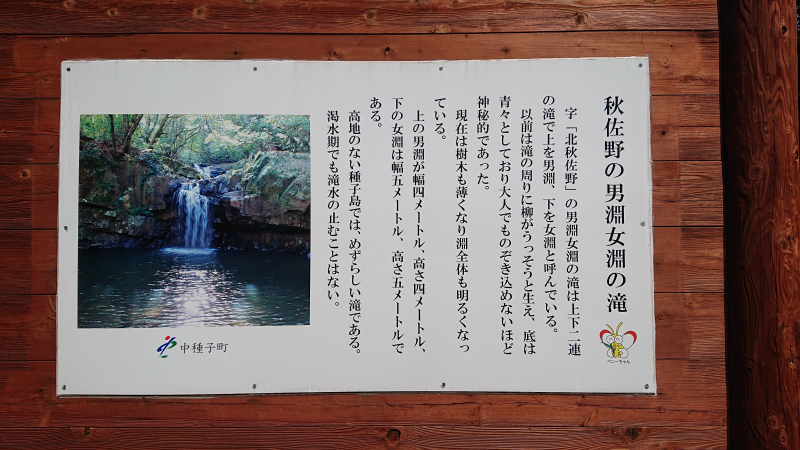 秋佐野の男淵女淵の滝
字「北秋佐野」の男淵女淵の滝は上下二連
の滝で上を男淵、下を女淵と呼んでいる。
以前は滝の周りに柳がうっそうと生え、底は
青々としており大人でものぞき込めないほど
神秘的であった。
現在は樹木も薄くなり淵全体も明るくなっ
ている。
上の男淵が幅四メートル、高さ四メートル、
下の女淵は幅五メートル、高さ五メートルで
ある。
高地のない種子島では、めずらしい滝である。
渇水期でも滝水の止むことはない。
中種子町
べニーちゃん